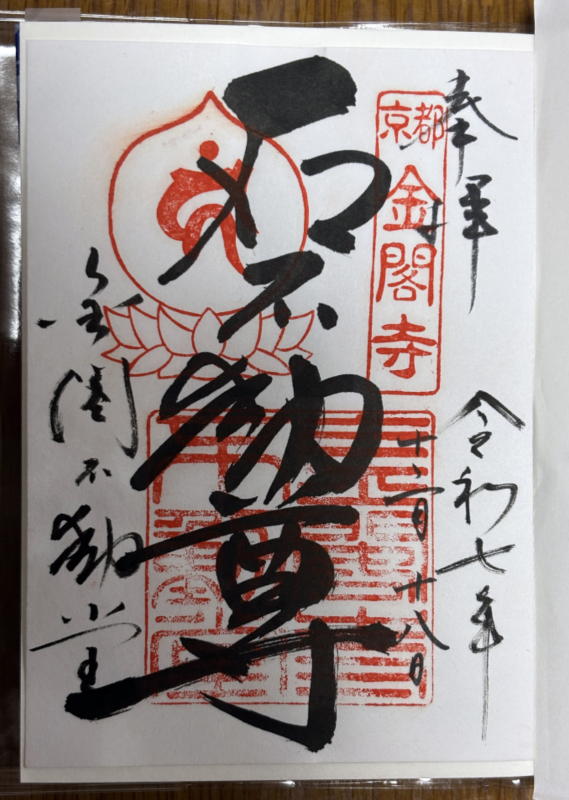 奉拝
令和七年
十二月廿八日
京都
金閣寺
石不動尊
金閣不動堂